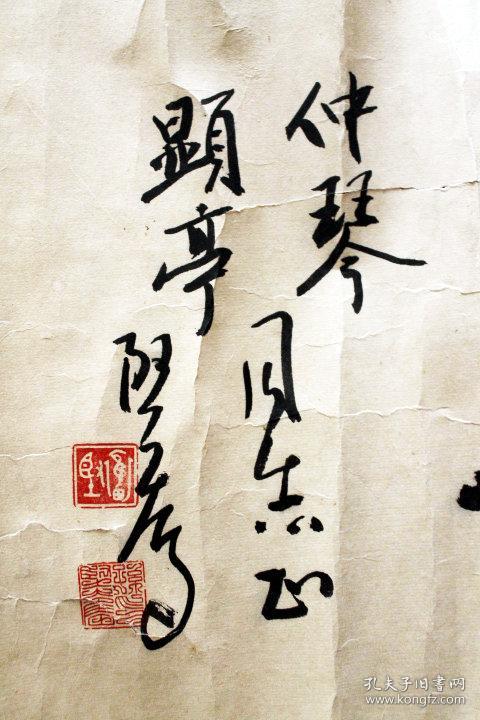 仲琴同志正
顯亭
孔夫子旧书网
www.kongfz.com